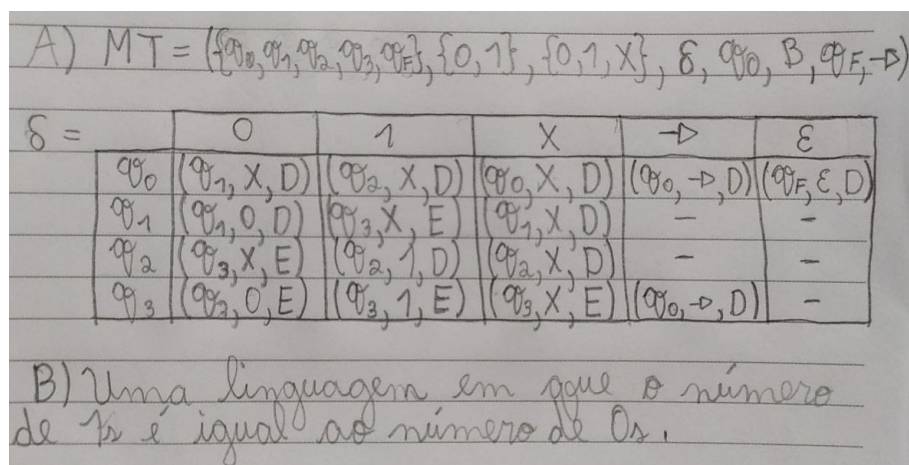 A) MT = ({q0, q1, q2, q3, qF}, {0,1}, {0,1,X}, δ, q0, B, qF, →)
δ = 0 1 X → ε
q0 (q1, X, D) (q2, X, D) (q0, X, D) (q0, →, D) (qF, ε, D)
q1 (q1, 0, D) (q3, X, E) (q1, X, D) - -
q2 (q3, X, E) (q2, 1, D) (q2, X, D) - -
q3 (q3, 0, E) (q3, 1, E) (q3, X, E) (q0, →, D) -
B) Uma linguagem em que o número
de 1s é igual ao número de 0s.